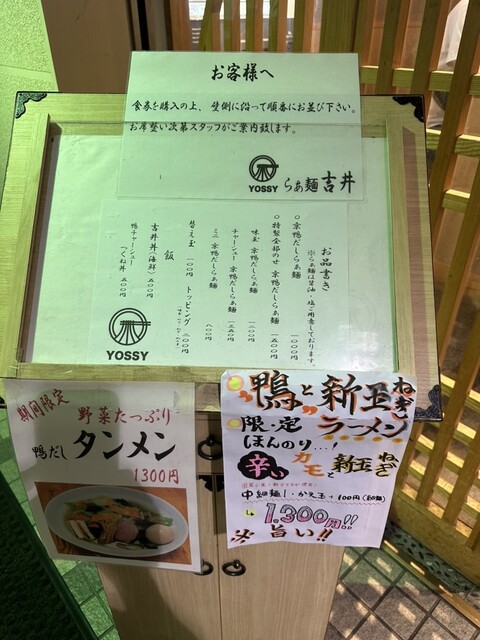 お客様へ
食券を購入の上、壁側に沿って順番にお並び下さい。
お席整い次第スタッフがご案内致します。
YOSSY
らぁ麺 吉井
お品書き
※らぁ麺は醤油・塩ご用意しております。
○京鴨だしらぁ麺 一〇〇〇
○特製全部のせ 京鴨だしらぁ麺 一五〇〇
味玉 京鴨だしらぁ麺
チャーシュー 京鴨だしらぁ麺 一三五〇
ミニ 京鴨だしらぁ麺 八〇〇
替え玉 一〇〇
トッピング
飯
吉井丼(海鮮) 五〇〇
鴨チャーシュー
つくね丼 五〇〇
YOSSY
期間限定
野菜たっぷり
鴨だし タンメン
1300円
鴨と新玉ねぎ
限・定 ラーメン
ほんのり…!
辛い カモと新玉ねぎ
中細麺!・かえ玉
1,300円!!
旨い!!